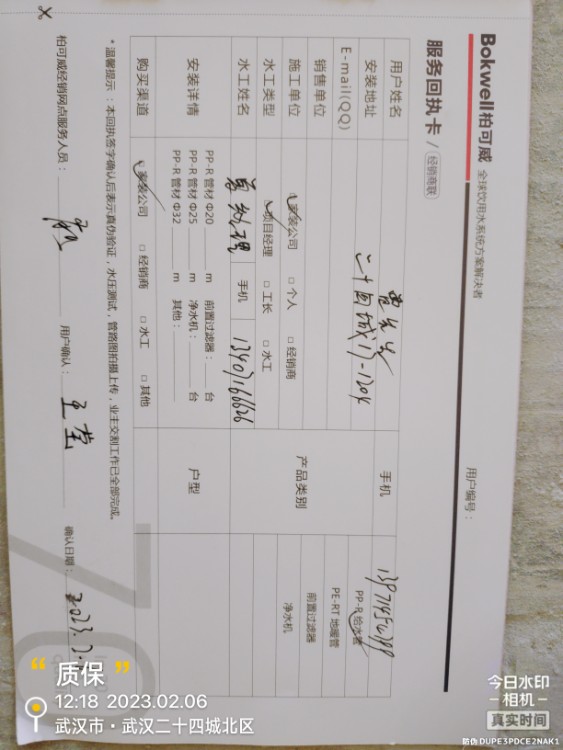 Bokwell柏可威 全球饮用水系统方案解决者
服务回执卡 / 经销商联
用户编号：
用户姓名 曾先生 手机
安装地址 二十四城17-1204
E-mail(QQ)
销售单位
产品类别 PP-R 给水管
PE-RT 地暖管
前置过滤器
净水机
施工单位 家装公司 □ 个人 □ 经销商
水工类型 项目经理 □ 工长 □ 水工
水工姓名 手机 13407166626
安装详情 PP-R 管材 Φ20 m 前置过滤器： 台
PP-R 管材 Φ25 m 净水机： 台
PP-R 管材 Φ32 m 其他：
户型
购买渠道 家装公司 □ 经销商 □ 水工 □ 其他
* 温馨提示：本回执签字确认后表示真伪验证，水压测试，管路图拍摄上传，业主交割工作已全部完成。
柏可威经销网点服务人员： 用户确认： 王莹 确认日期： 2023.2.
“质保”
12:18 2023.02.06
武汉市·武汉二十四城北区
今日水印
-相机-
真实时间
防伪 DUPE3PDCE2NAK1